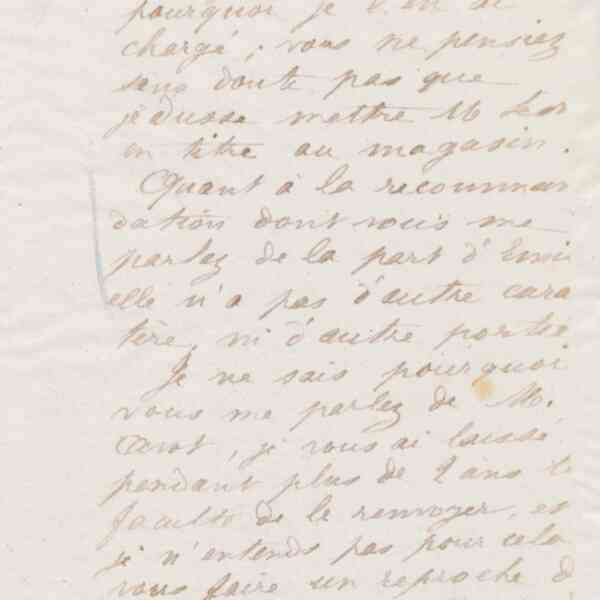 pourquoi je
chargé ; vous ne pensiez
sans doute pas que
je dusse mettre M
en titre au magasin.
Quant à la recomman
dation dont vous me
parlez de la part d'Emi
elle n'a pas d'autre cara
tère, ni d'autre portée
Je ne sais pourquoi
vous me parlez de M.
je vous ai laissé
pendant plus de 2 ans
faculté de le renvoyer, et
je n'entends pas pour cela
vous faire un reproche d